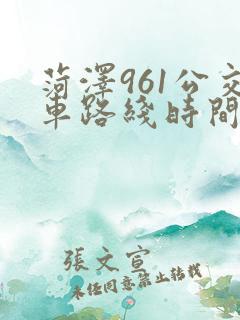 菏澤961公交
車路綫時間
張文宣
未經同意禁止轉載